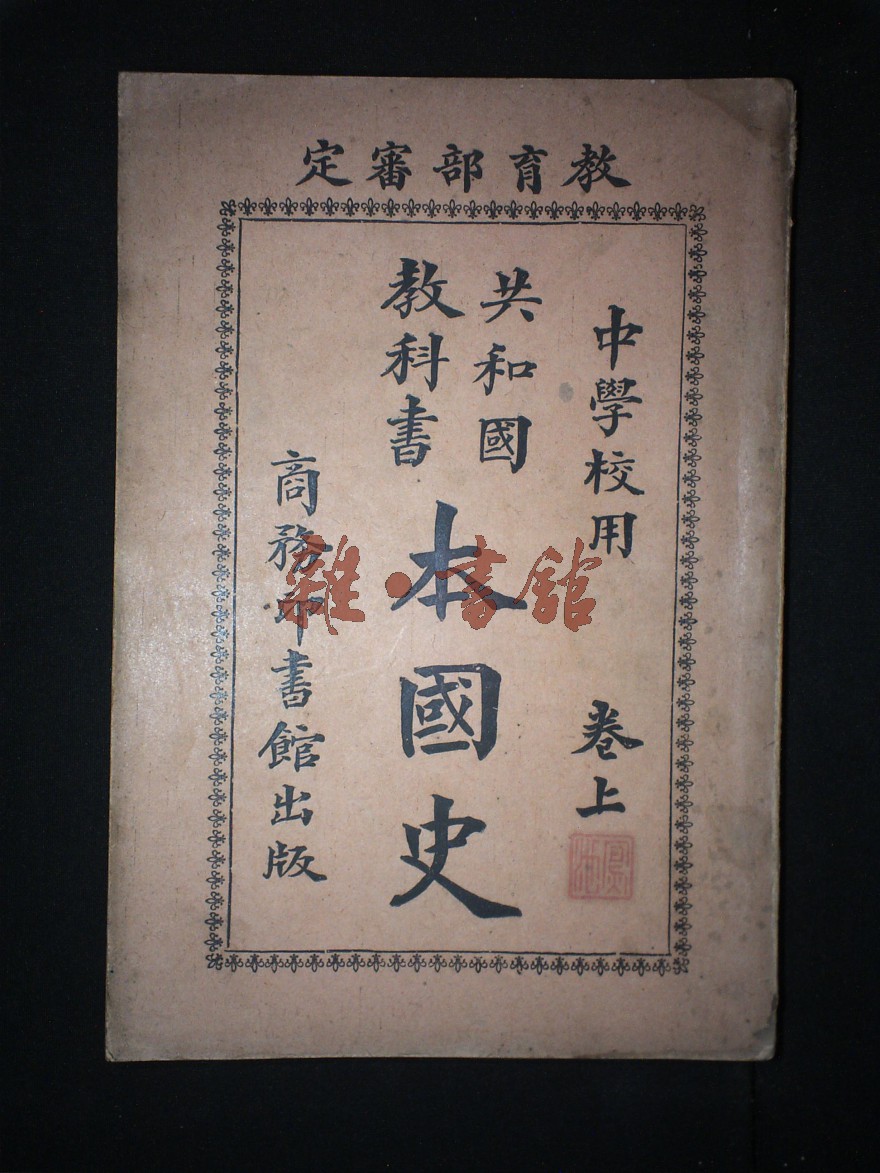 教育部審定
中學校用 卷上
共和國
教科書
本國史
商務印書館出版
雜·書館